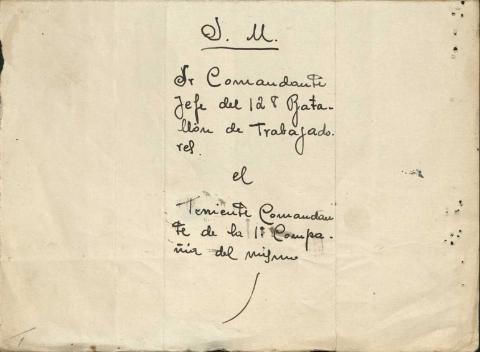 S. M.
Sr Comandante
Jefe del 128 Bata-
llón de Trabajado-
res.
el
Teniente Comandan
te de la 1ª Compa-
ñia del mismo